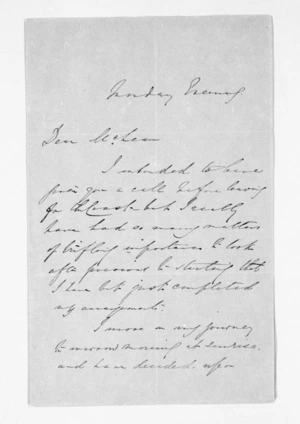 Evening
Dear McLean
I intended to have
given you a call before leaving
for but I really
have had so many matters
of trifling importance to look
after previous to starting that
I have but just completed
my arrangements.
I move on my journey
to morrow morning at sunrise
and have decided upon